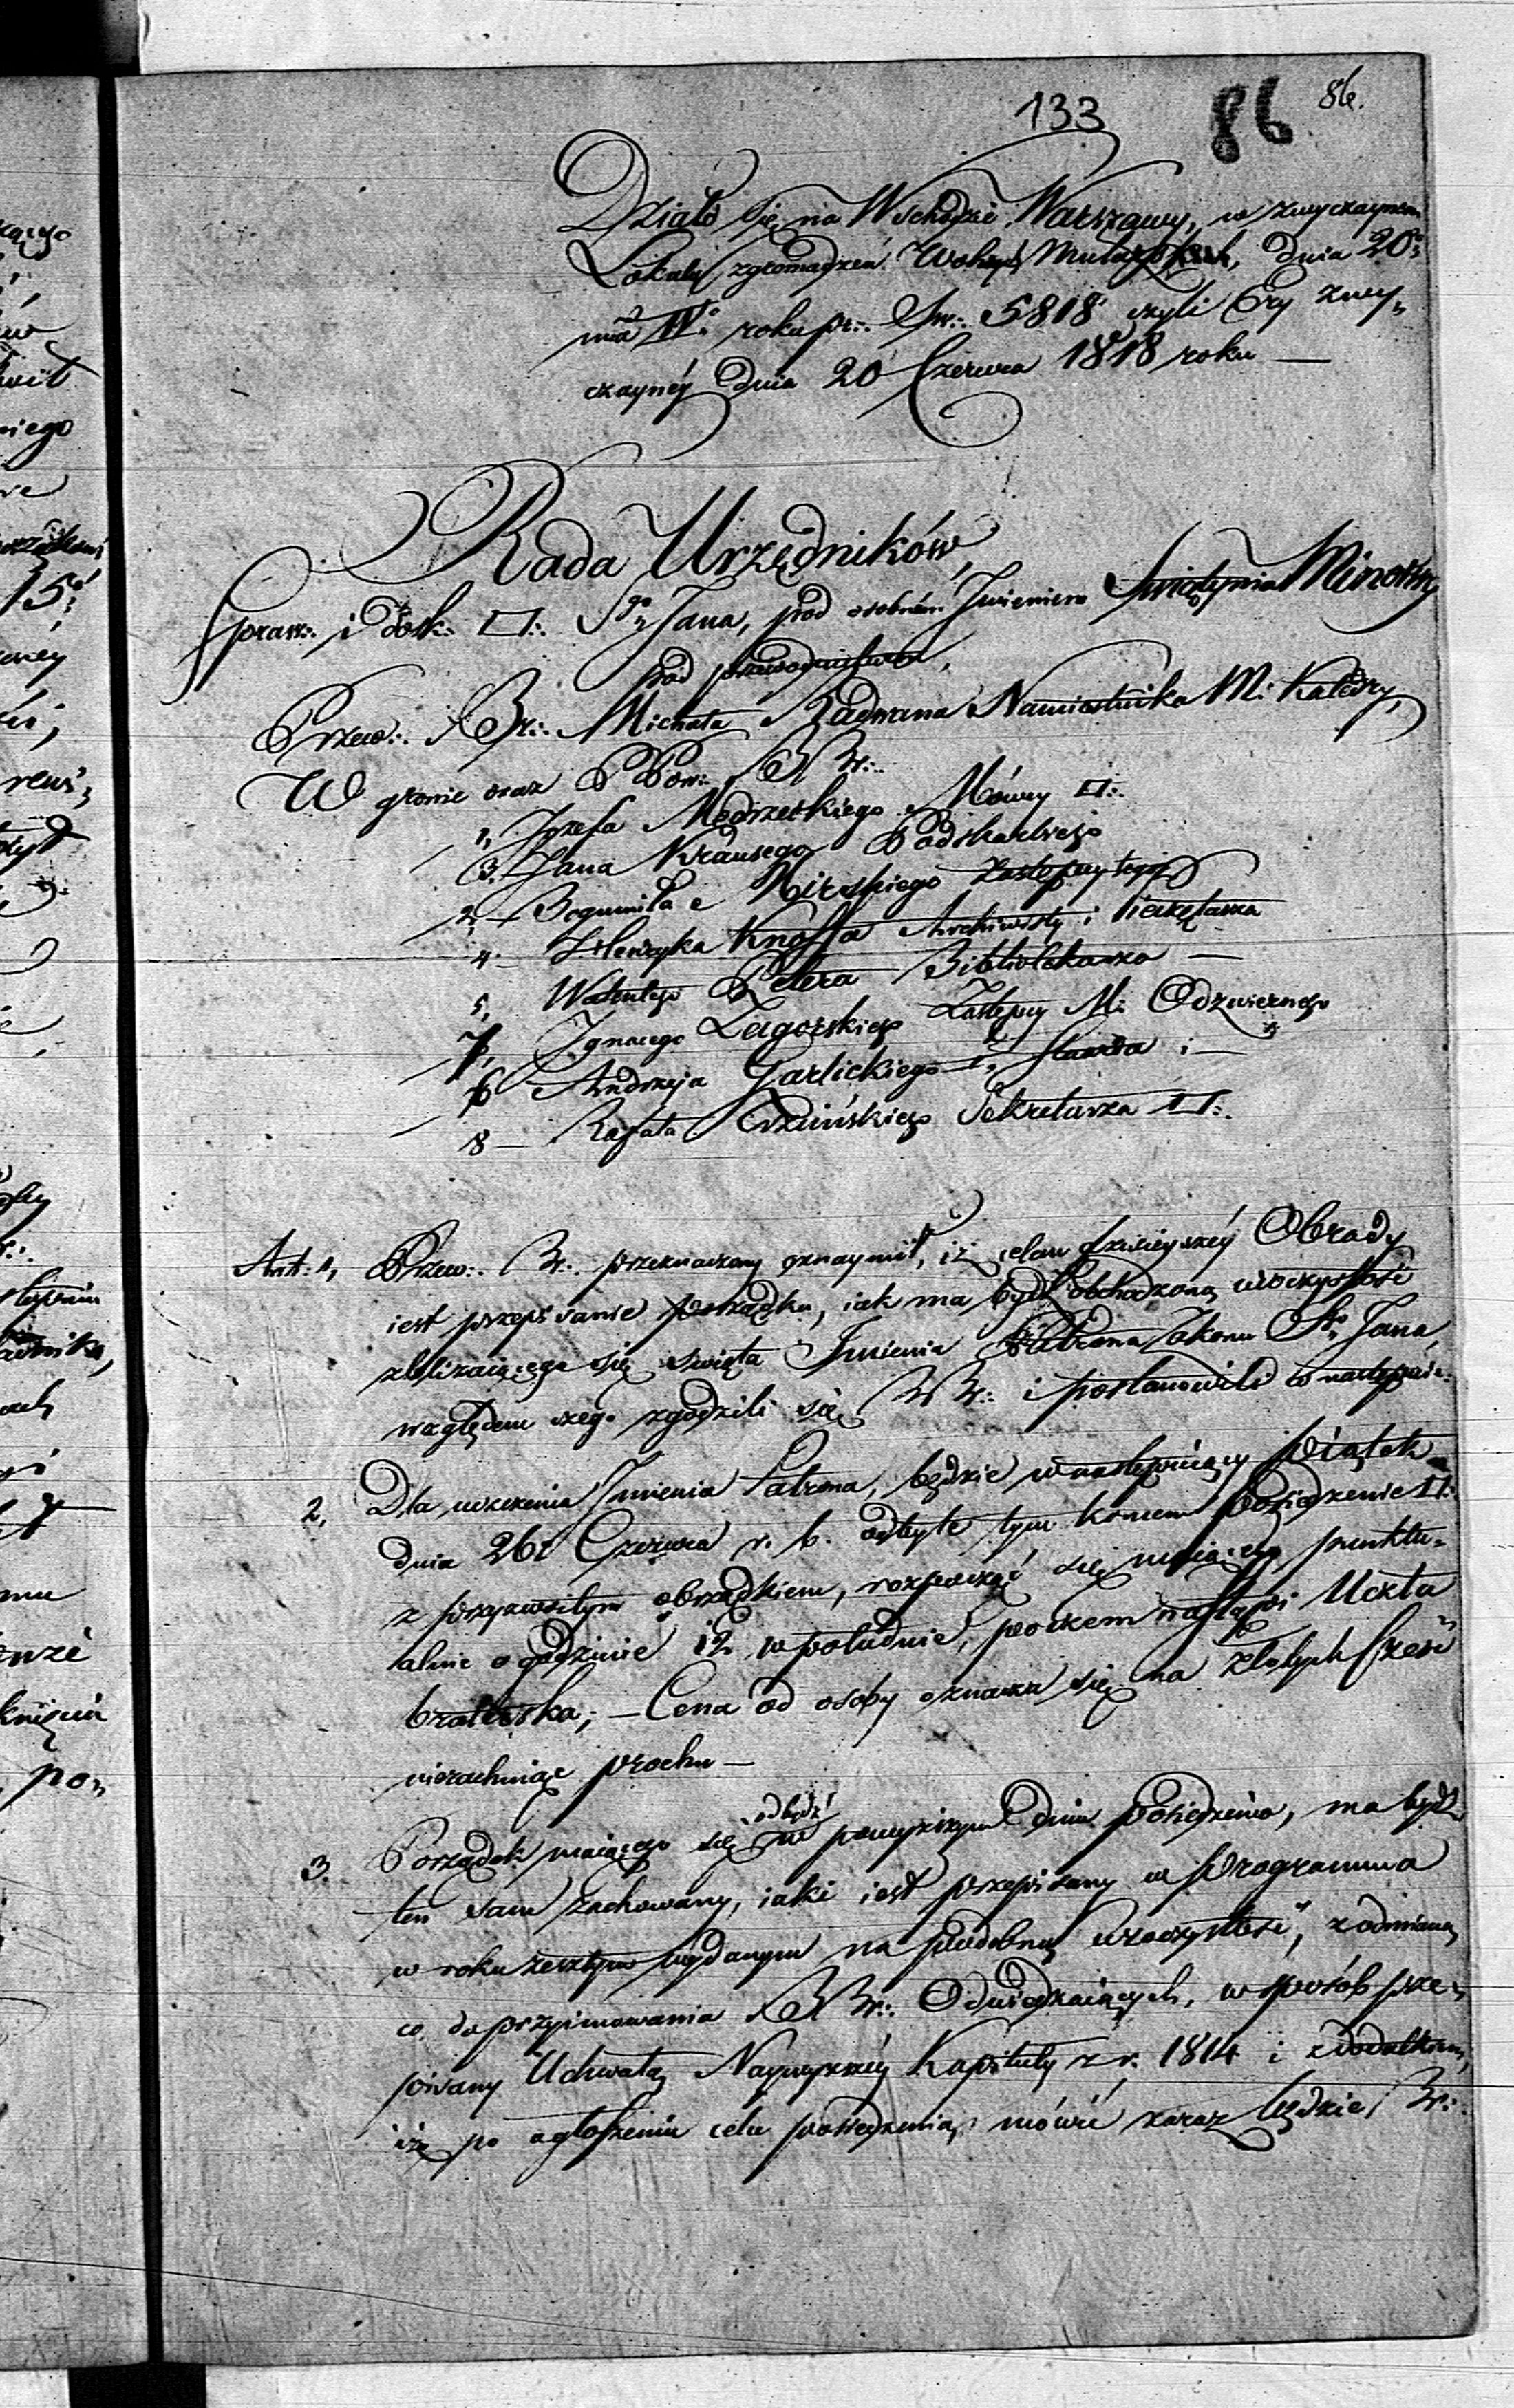 133 86 86.
Działo się na Wschodzie Warszawy, w zwyczaynem
Lokalu zgromadzeń Wolnych Mularskich, dnia 20.
m̃a IV. roku pr:. Św:. 5818 czyli Ery zwy„
czaynéy dnia 20 Czerwca 1818 roku —
Rada Urzędników,
Spraw:. i Dosk:. □:. Sgo Jana, pod osobném Imieniem Swiątynia Minerwy
pod przewodnictwem,
Przew:. Br:. Michała Radwana Namiestnika M: Katedry,
W gronie oraz PPow:. BBr:.
1, Józefa Modrzewskiego Mówcy □:.
3. Jana Krausego Podskarbiego
2, — Bogumiła Nireskiego Zastępcy tegoż
4. — Henryka Knoffa Archiwisty i Pieczętarza
5, Walentego Petera Bibliotekarza —
7, Ignacego Zagorskiego Zastępcy M: Odzwiernego
6 Andrzeja Garlickiego Stuarta i —
8 — Rafała Sekretarza □:.
Art: 1, Przew:. Br:. przeznaczony oznaymił, iż celem dzisieyszéy Obrady
iest przepisanie porządku, iak ma bydź obchodzoną uroczystość
zbliżaiącego się święta Imienia Patrona Zakonu Sgo Jana,
względem czego zgodzili się BBr:. i postanowili co następuie:
2, Dla uczczenia Imienia Patrona, będzie w następuiący piątek
dnia 26. Czerwca r. b. odbyte tym końcem posiedzenie □:.
z przyzwoitym obrządkiem, rozpocząć się maiące punktu„
alnie o godzinie 12 w południe, poczem nastąpi Uczta
braterska; — Cena od osoby oznacza się na złotych sześć
nierachuiąc prochu —
3. Porządek maiącego się odbydź w powyższym dniu posiedzenia, ma bydź
ten sam zachowany, iaki iest przepisany w Programma
w roku zeszłym wydanym na podobną uroczystość, z odmianą
co do przyimowania BBr:. Odwiedzaiących, w sposób prze„
pisany Uchwałą Naywyższéy Kapituły z r. 1814 i z dodatkiem,
iż po ogłoszeniu celu posiedzenia, mówić zaraz będzie Br:.